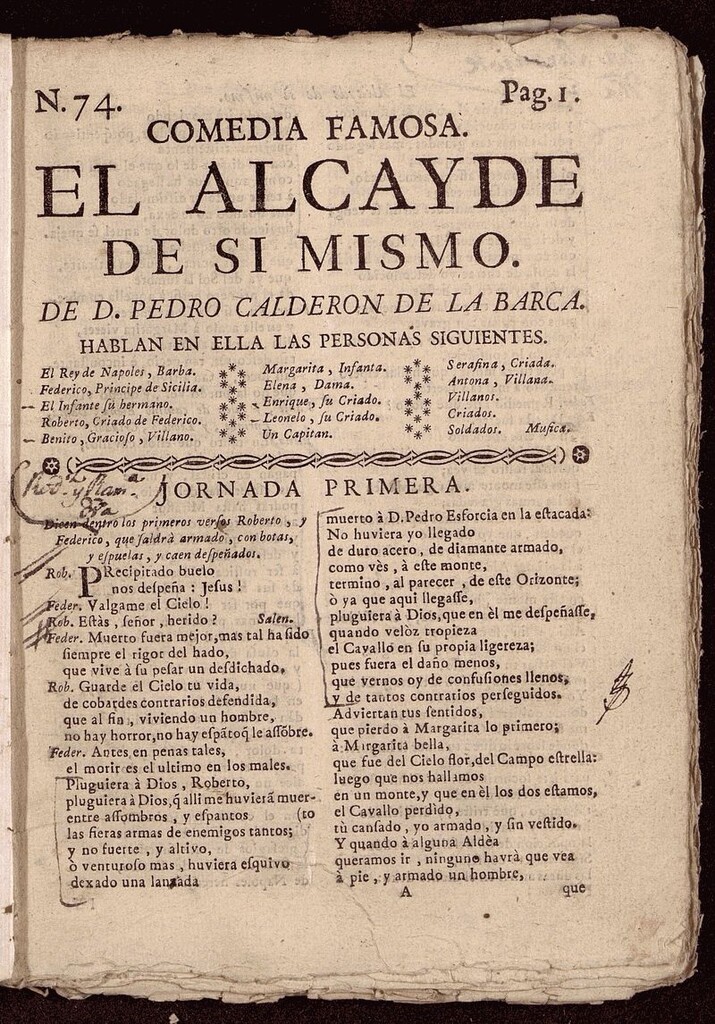 N. 74.
Pag. 1.
COMEDIA FAMOSA.
EL ALCAYDE
DE SI MISMO.
DE D. PEDRO CALDERON DE LA BARCA.
HABLAN EN ELLA LAS PERSONAS SIGUIENTES.
El Rey de Napoles, Barba.
Federico, Principe de Sicilia.
El Infante ſu hermano.
Roberto, Criado de Federico.
Benito, Gracioſo, Villano.
Margarita, Infanta.
Elena, Dama.
Enrique, ſu Criado.
Leonelo, ſu Criado.
Un Capitan.
Serafina, Criada.
Antona, Villana.
Villanos.
Criados.
Soldados. Muſica.
JORNADA PRIMERA.
Dicen dentro los primeros verſos Roberto, y
Federico, que ſaldrà armado, con botas,
y eſpuelas, y caen deſpeñados.
Rob. PRecipitado buelo
nos deſpeña: Jeſus!
Feder. Valgame el Cielo!
Rob. Eſtàs, ſeñor, herido? Salen.
Feder. Muerto fuera mejor, mas tal ha ſido
ſiempre el rigor del hado,
que vive à ſu peſar un deſdichado.
Rob. Guarde el Cielo tu vida,
de cobardes contrarios defendida,
que al fin, viviendo un hombre,
no hay horror, no hay eſpãto q̃ le aſſõbre.
Feder. Antes, en penas tales,
el morir es el ultimo en los males.
Pluguiera à Dios, Roberto,
pluguiera à Dios, q̃ alli me huvierã muer-
entre aſſombros, y eſpantos (to
las fieras armas de enemigos tantos;
y no fuerte, y altivo,
ò venturoſo mas, huviera eſquivo
dexado una lanzada
muerto à D. Pedro Esforcia en la eſtacada:
No huviera yo llegado
de duro acero, de diamante armado,
como vès, à eſte monte,
termino, al parecer, de eſte Orizonte;
ò ya que aqui llegaſſe,
pluguiera à Dios, que en èl me deſpeñaſſe,
quando velòz tropieza
el Cavallo en ſu propia ligereza;
pues fuera el daño menos,
que vernos oy de confuſiones llenos,
y de tantos contrarios perſeguidos.
Adviertan tus ſentidos,
que pierdo à Margarita lo primero;
à Margarita bella,
que fue del Cielo flor, del Campo eſtrella:
luego que nos hallamos
en un monte, y que en èl los dos eſtamos,
el Cavallo perdido,
tù canſado, yo armado, y ſin veſtido.
Y quando à alguna Aldèa
queramos ir, ninguno havrà que vea
à pie, y armado un hombre,
A
que